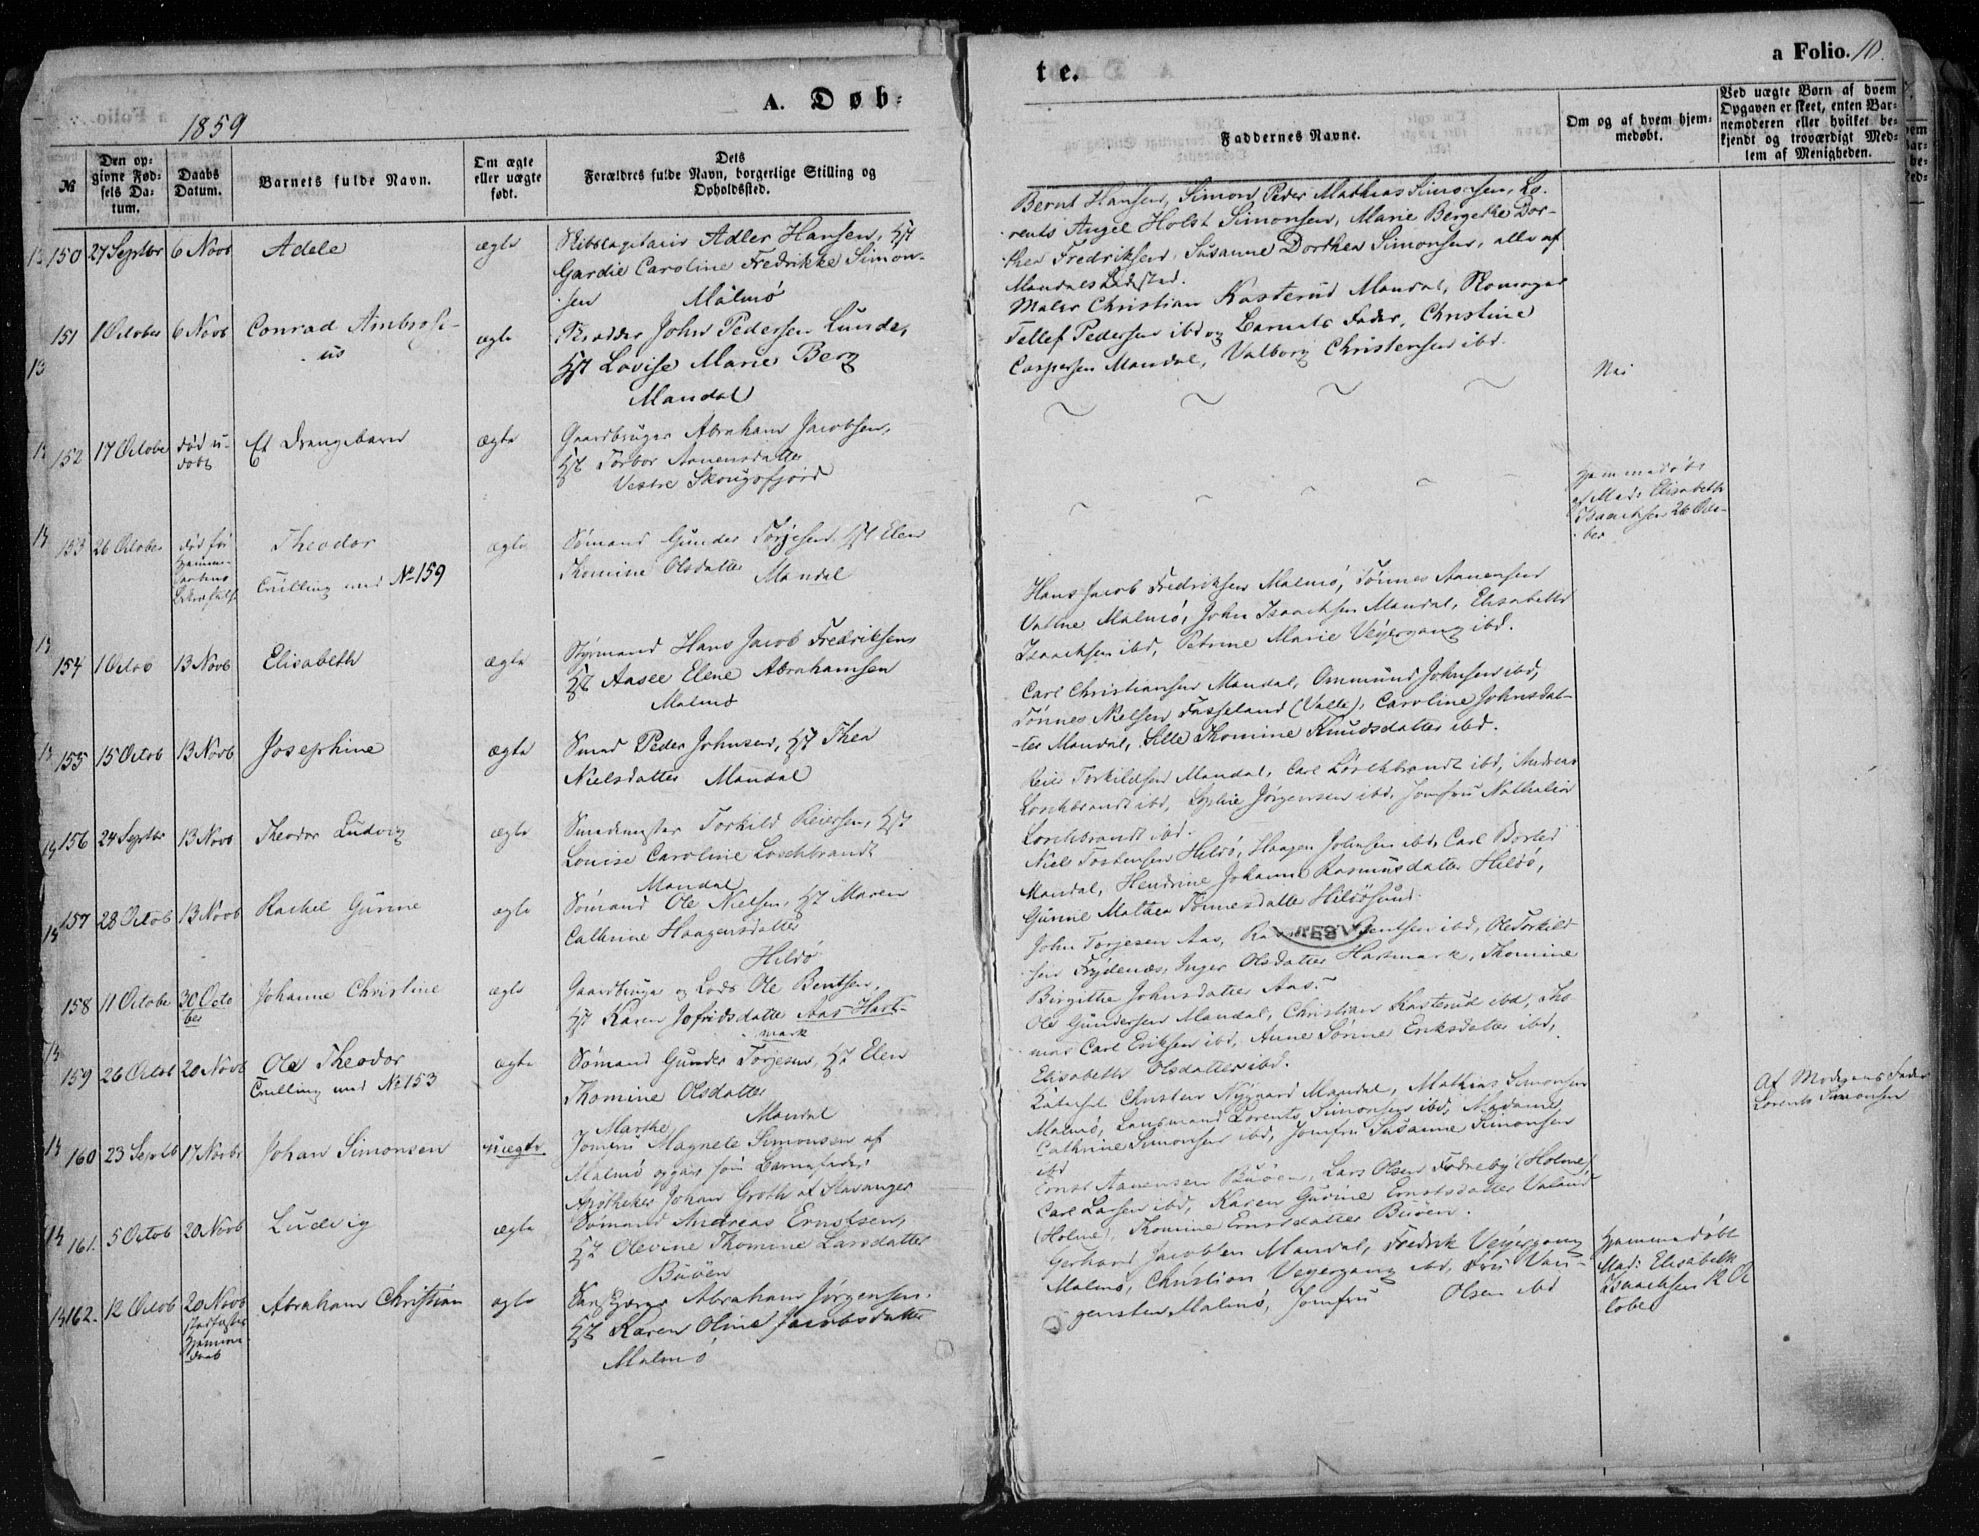 A. Døb-
te.
a Folio. 10.
1859
№
Den op-
givne Fød-
sels Da-
tum.
Daabs
Datum.
Barnets fulde Navn.
Om ægte
eller uægte
født.
Dets
Forældres fulde Navn, borgerlige Stilling og
Opholdssted.
Faddernes Navne.
Om og af hvem hjem-
medøbt.
Ved uægte Børn af hvem
Opgaven er skeet, enten Bar-
nemoderen eller hvilket be-
kjendt og troværdigt Med-
lem af Menigheden.
150 27 Septbr 6 Novb Adele ægte Skibscapitain Adler Hansen, Hst
Gardie Caroline Fredrikke Simon-
sen Malmö
Bernt Hansen, Simon Peder Mathias Simonsen, Lo-
rents Angel Holst Simonsen, Marie Bergethe Dor-
thea Fredriksen, Susanne Dorthea Simonsen, alle af
Mandals Ladested.
151 1 October 6 Novb Conrad Ambrosi-
us ægte John Pedersen Lunde,
Hst Lovise Marie Berg
Mandal
Maler Christian Kasterud Mandal, Skomager
Tellef Pedersen ibd og Barnets Fader, Christine
Caspersen Mandal, Valborg Christensen ibd.
Nei
152 17 Octobe død u-
døbt Et Drengebarn ægte Gaardbruger Abraham Jacobsen,
Hst Torbor Aanensdatter
Vestre Skougsfjord
153 26 October død før
Hjemme-
daabens
Bekræftelse Theodor
Tvilling med № 159 ægte Sømand Gunder Torjesen, Hst Elen
Thomine Olsdatter Mandal
Hjemmedøbt
af Mad: Elisabeth
Isaachsen 26 Octo-
ber
154 1 Octob 13 Novb Elisabeth ægte Styrmand Hans Jacob Fredriksen
Hst Aasee Elene Abrahamsen
Malmö
Hans Jacob Fredriksen Malmö, Tönnes Aanensen
Valine Malmö, John Isaachsen Mandal, Elisabeth
Isaachsen ibd, Petrine Marie Veyergang ibd.
155 15 Octob 13 Novb Josephine ægte Smed Peder Johnsen, Hst Thea
Nielsdatter Mandal
Carl Christiansen Mandal, Ommund Johnsen ibd,
Tönnes Nielsen Fasseland (Valle), Caroline Johnsdat-
ter Mandal, Sille Thomine Knudsdatter ibd.
156 24 Septbr 13 Novb Theodor Ludvig ægte Smedemester Torkild Reiersen, Hst
Louise Caroline Loschbrandt
Mandal
Reier Torkildsen Mandal, Carl Loschbrandt ibd, Andreas
Loschbrandt ibd, Sophie Jörgensen ibd, Jomfru Nathalia
Loschbrandt ibd.
157 28 Octob 13 Novb Rachel Gurine ægte Sømand Ole Nielsen, Hst Maren
Cathrine Haagensdatter
Hildö
Niels Tostensen Hildö, Haagen Johnsen ibd, Carl Bortod
Mandal, Hendrine Johanne Rasmusdatter Hildö,
Gunnil Mathea Tönnesdatter Hildösund.
158 11 Octobe 30 Octo
ber Johanne Christine ægte Gaardbruger og Lods Ole Bentsen,
Hst Karen Jofridsdatter Aas Hart-
mark
John Torjesen Aas, Bentsen ibd, Ole Torkild-
sen Frydenæs, Inger Olsdatter Hartmark, Thomine
Birgitte Johnsdatter Aas.
159 26 Octob 20 Novb Ole Theodor
Tvilling med № 153 ægte Sømand Gunder Torjesen, Hst Elen
Thomine Olsdatter
Mandal
Ole Gundersen Mandal, Christian Kasterud ibd, Tho
mas Carl Eriksen ibd, Anne Sörine Eriksdatter ibd,
Elisabeth Olsdatter ibd.
160 23 Septb 17 Novbr Johan Simonsen uægte Marthe
Jomfru Magnete Simonsen af
Malmö opgiver som Barnefader
Apotheker Johan Groth af Stavanger
Christen Nygaard Mandal, Mathias Simonsen
Malmö, Lorents Simonsen ibd, Madame
Cathrine Simonsen ibd, Jomfru Susanne Simonsen
ibd
Af Moderens Fader
Lorents Simonsen
161. 5 Octob 20 Novb Ludvig ægte Sømand Andreas Ernstsen,
Hst Olevine Thomine Larsdatter
Buöen
Ernst Aanensen Buöen, Lars Olsen Fodneby (Holme)
Carl Larsen ibd, Karen Gurine Ernstsdatter Valand
(Holme), Thomine Ernstdatter Buöen.
162. 12 Octob 20 Novb
stadfæstet
Hjemme
daab Abraham Christian ægte Abraham Jörgensen,
Hst Karen Oline Jacobsdatter
Malmö
Gerhard Jacobsen Mandal, Fredrik Veyergang
Malmö, Christian Veyergang ibd,
Malmö, Jomfru Olsen ibd
Hjemmedøbt
Mad: Elisabeth
Isaachsen 12 Oc
tober